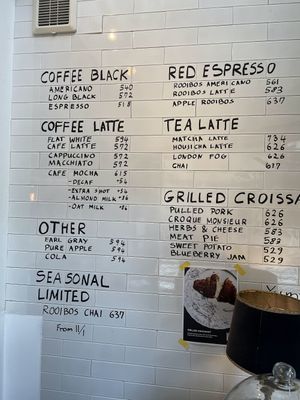 COFFEE BLACK
AMERICANO 540
LONG BLACK 572
ESPRESSO 518
COFFEE LATTE
FLAT WHITE 594
CAFE LATTE 572
CAPPUCCINO 572
MACCHIATO 572
CAFE MOCHA 615
-DECAF +54
-EXTRA SHOT +54
-ALMOND MILK +86
-OAT MILK +86
OTHER
EARL GRAY 594
PURE APPLE 594
COLA 594
SEASONAL
LIMITED
ROOIBOS CHAI 637
From 11/1
RED ESPRESSO
ROOIBOS AMERICANO 561
ROOIBOS LATTE 583
APPLE ROOIBOS 637
TEA LATTE
MATCHA LATTE 734
HOUJICHA LATTE 626
LONDON FOG 626
CHAI 617
GRILLED CROISSA
PULLED PORK 626
CROQUE MONSIEUR 626
HERBS & CHEESE 583
MEAT PIE 583
SWEET POTATO 529
BLUEBERRY JAM 529